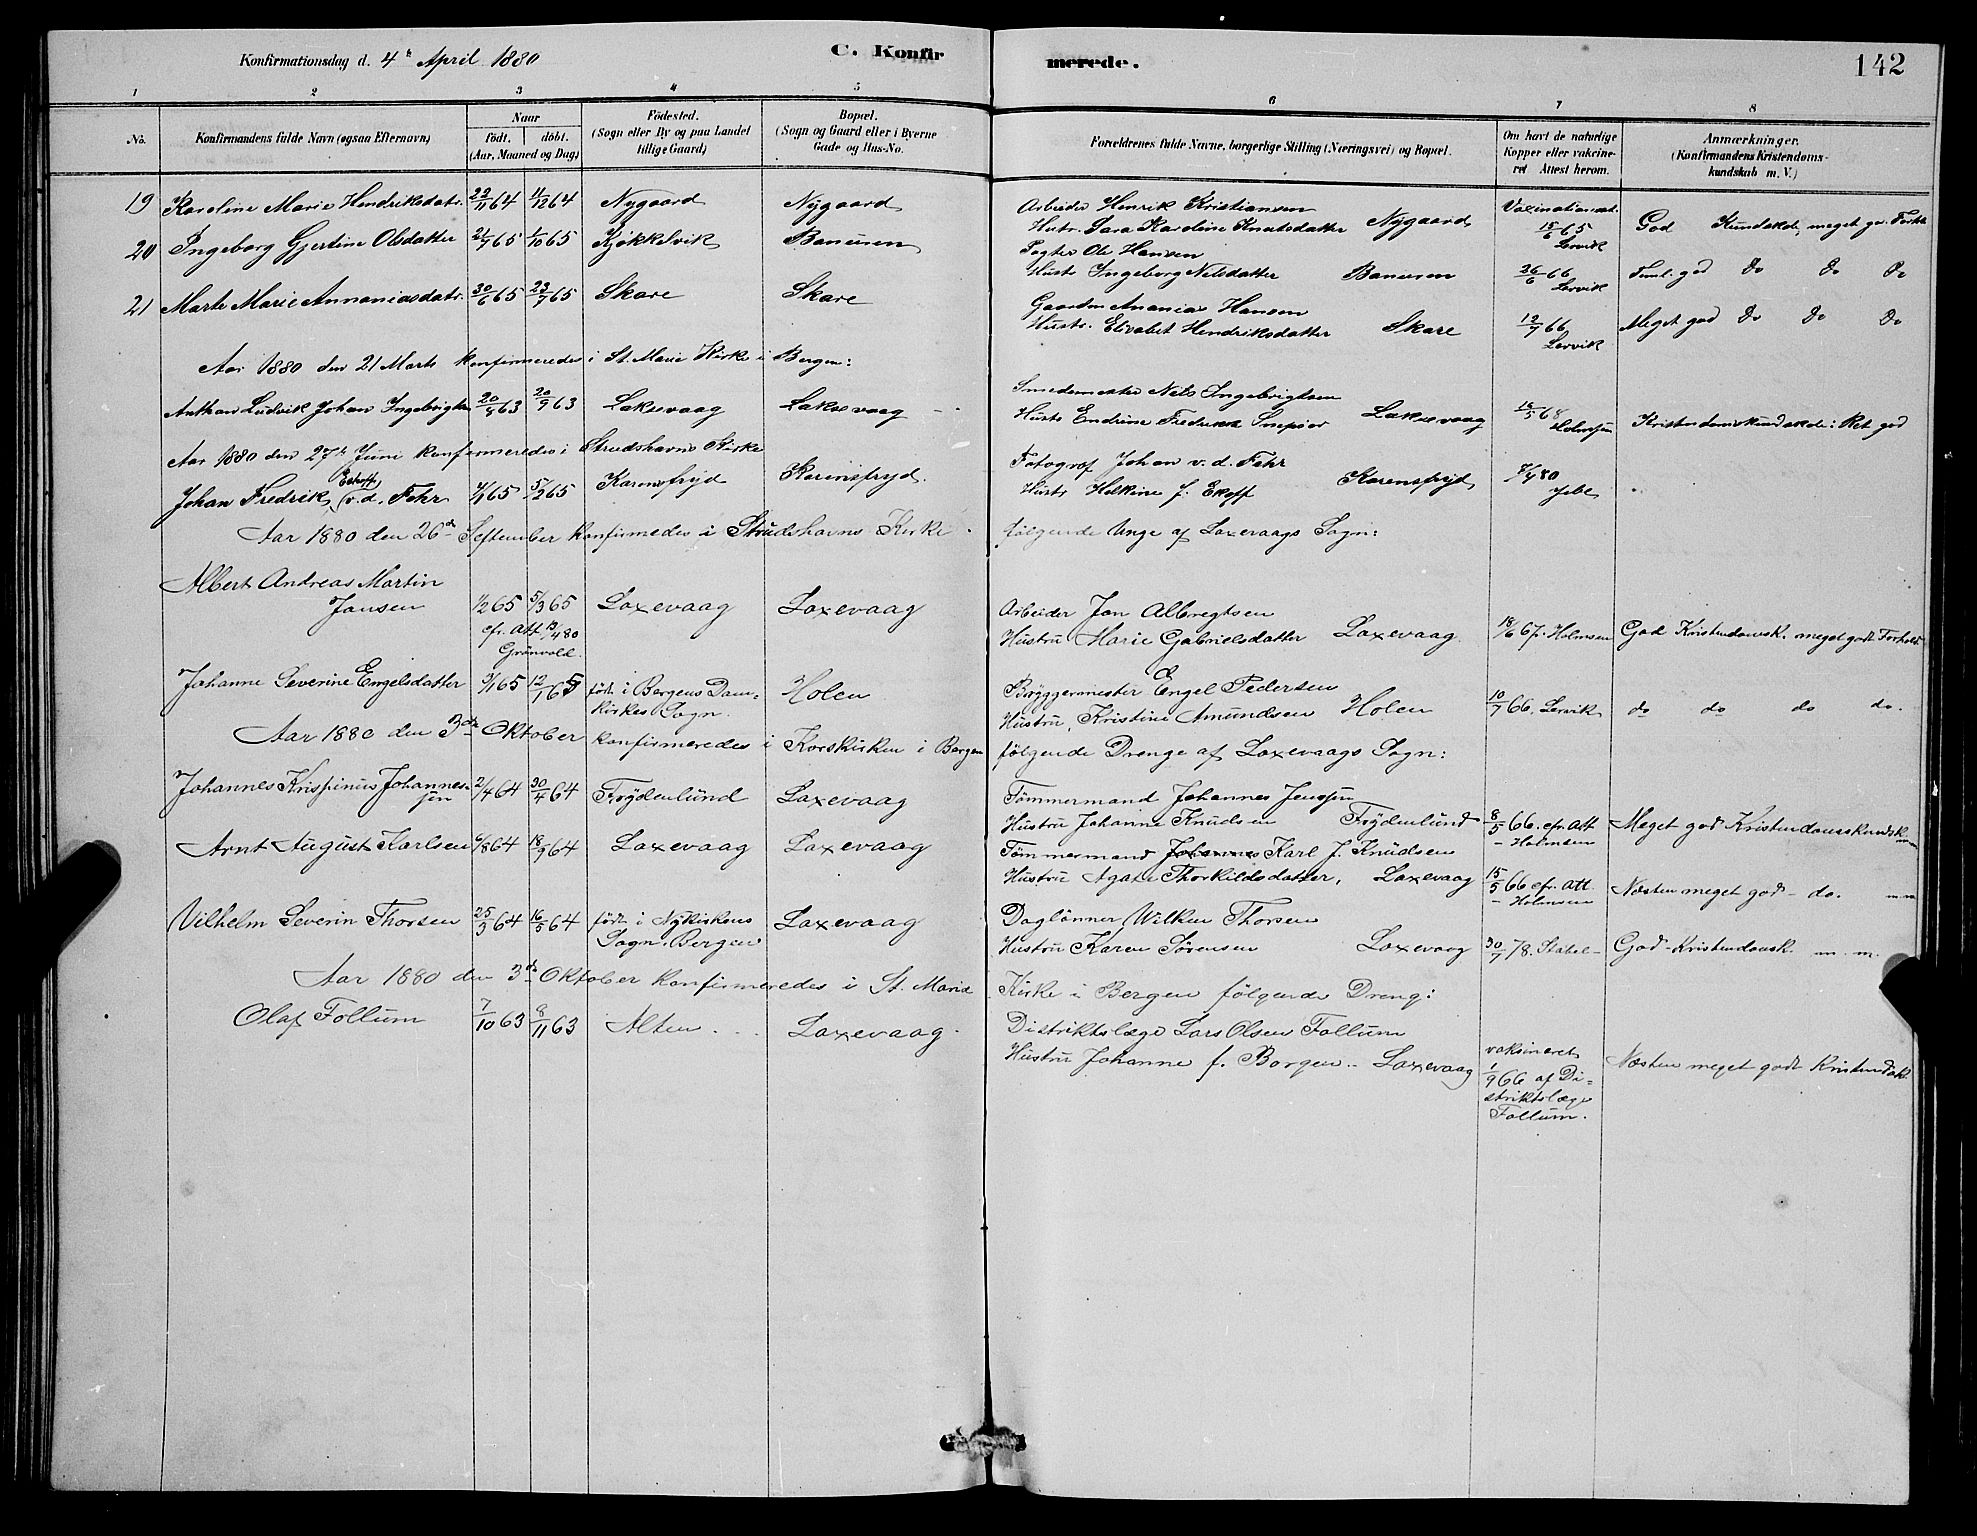 Konfirmationsdag d. 4de April 1880
C. Konfirmerede.
142
1 2 3 4 5 6 7 8
No.
Konfirmandens fulde Navn (ogsaa Efternavn)
Naar
födt. döbt.
(Aar, Maaned og Dag)
Födested.
(Sogn eller By og paa Landet
tillige Gaard)
Bopæl.
(Sogn og Gaard eller i Byerne
Gade og Hus-No.
Forældrenes fulde Navne, borgerlige Stilling (Næringsvei) og Bopæl.
Om havt de naturlige
Kopper eller vakcine-
ret Attest herom.
Anmærkninger.
(Konfirmandens Kristendoms-
kundskab m. V.)
19 Karoline Marie Hendriksdatr. 22/11 64 11/12 64 Nygaard Nygaard
Arbeider Henrik Kristiansen
Hustr. Sara Karoline Knutsdatter Nygaard
Vaxinationsat.
15/6 65
Lervik
God Kundskab, meget go. Forh.
20 Ingeborg Gjertine Olsdatter 21/9 65 1/10 65 Kjøkkelvik Baneuren
Pagter Ole Hansen
Hustr Ingeborg Nilsdatter Baneuren
26/6 66
Lervik
Teml. god Do Do Do
21 Marte Marie Annaniasdatr. 30/6 65 23/7 65 Skare Skare
Gaardm Ananias Hansen
Hustr. Elisabet Hendriksdatter Skare
12/7 66
Lervik
Meget god Do Do Do
Aar 1880 den 21 Marts konfirmeredes i St. Marie Kirke i Bergen:
Anthan Ludvik Johan Ingebrigtsen 20/8 63 20/9 63 Laksevaag Laksevaag
Smedemester Nils Ingebrigtsen
Hustr Endrine Fredrikke Laksevaag
18/5 68
Holmsen
Kristendomskundskab: Ret god
Aar 1880 den 27de Juni konfirmeredes i Strudshavns Kirke
Johan Fredrik (Eckhoff) v. d. Fehr 4/1 65 5/2 65 Karensfryd Karensfryd.
Fotograf Johan v. d. Fehr
Hustr f. Ekoff Karensfryd
Aar 1880 den 26de September konfirmedes i Strudshavns Kirke
følgende Unge af Laxevaags Sogn:
Albert Andreas Martin
Jansen 1/2 65 5/3 65 Laxevaag Laxevaag
cfr. Att 13/4 80
Grönvold.
Arbeider Jan Albregtsen
Hustru Marie Gabrielsdatter Laxevaag
18/6 67. Holmsen God Kristendomsk. meget godt Forhold
Johanne Severine Engelsdatter 3/1 65 12/1 65 født i Bergens Dom=
kirkes Sogn. Holen
Bryggermester Engel Pedersen
Hustru, Kristine Amundsen Holen
10/7 66. Lervik do do do do.
Aar 1880 den 3de Oktober konfirmeredes i Korskirken i Bergen
følgende Drenge af Laxevaags Sogn:
Johannes Krispinus Johannes=
sen 2/4 64 30/4 64 Frydenlund Laxevaag
Tömmermand Johannes Jenssen
Hustru Johanne Knudsen Frydenlund
8/5 66. cfr. Att
- Holmsen
Meget god Kristendomskundsk.
Arnt August Karlsen 6/8 64 18/9 64 Laxevaag Laxevaag
Tömmermand Johannes Karl J. Knudsen
Hustru Agate Thorkildsdatter, Laxevaag
15/5 66 cfr. Att.
- Holmsen
Næsten meget god - do. m.m
Vilhelm Severin Thorsen 25/3 64 16/5 64 født i Nykirkens
Sogn, Bergen Laxevaag
Daglönner Wilken Thorsen
Hustru Karen Sörensen Laxevaag
30/7 78. Stabel- God - Kristendomsk. m. m.
Aar 1880 den 3de Oktober konfirmeredes i St. Maria
Kirke i Bergen følgende Dreng:
Olaf Follum 7/10 63 8/11 63 Alten Laxevaag.
Distriktslæge Lars Olsen Follum
Hustru Johanne f. Borgen Laxevaag
vaksineret
1/9 66 af Di=
striktslæge
Follum.
Næsten meget godt Kristendsk.